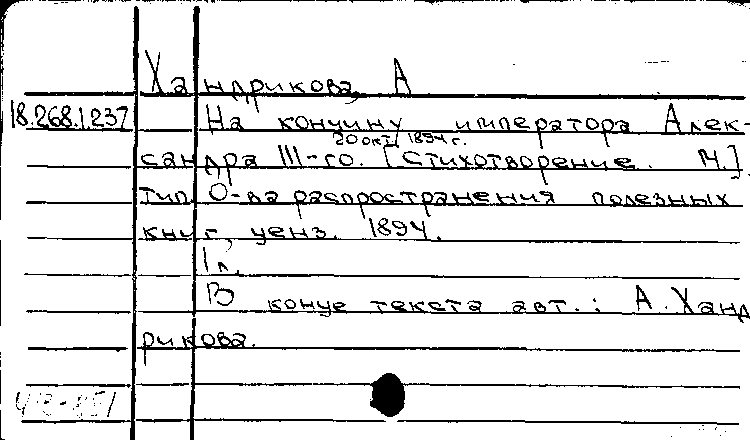 Хандрикова, А
18.268.1.237 На кончину императора Алек-
20 окт. 1894 г.
сандра III-го. [Стихотворение. М.].
Тип. О-ва распространения полезных
книг, ценз. 1894.
1 л.
В конце текста авт.: А. Ханд
рикова.